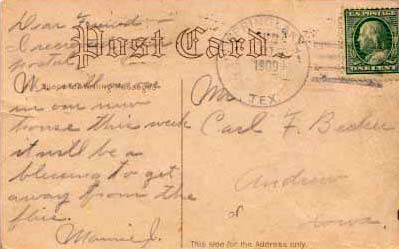 Dear Friend—
I
postal
Post Card.
1909
TEX.
U.S. POSTAGE
ONE CENT
We will move
in our new
house this week
it will be a
blessing to get
away from the
flies.
Mamie J.
Mr.
Carl F. Becker
Andrew
Iowa.
This side for the Address only.